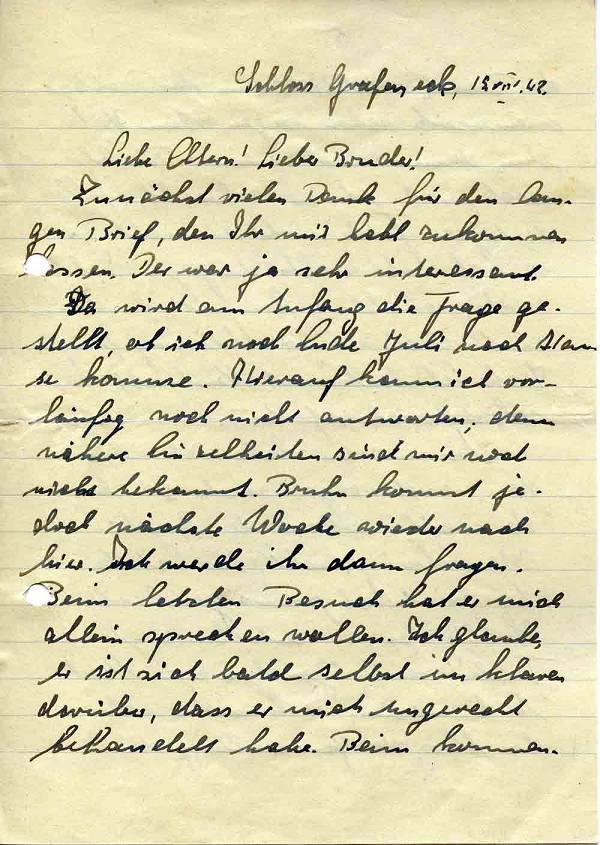 Schloss Grafeneck, 12.VII.42.
Liebe Eltern! Lieber Bruder!
Zunächst vielen Dank für den lan-
gen Brief, den Ihr mir habt zukommen
lassen. Der war ja sehr interessant.
Da wird am Anfang die Frage ge-
stellt, ob ich noch Ende Juli nach Hau-
se komme. Hierauf kann ich vor-
läufig noch nicht antworten, denn
nähere Einzelheiten sind mir noch
nicht bekannt. Bruhn kommt je-
doch nächste Woche wieder nach
hier. Ich werde ihn dann fragen.
Beim letzten Besuch hat er mich
allein sprechen wollen. Ich glaube,
er ist sich bald selbst im klaren
darüber, dass er mich ungerecht
behandelt habe. Beim kommen-